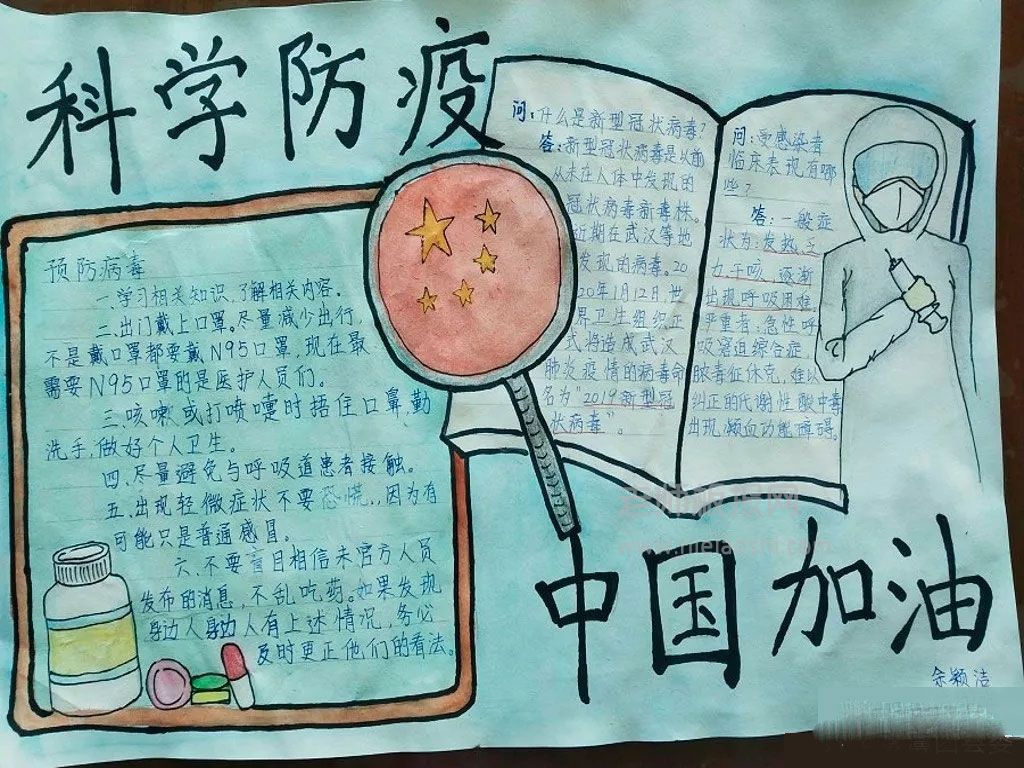 科学防疫
预防病毒
一.学习相关知识,了解相关内容。
二.出门戴上口罩。尽量减少出行,
不是戴口罩都要戴N95口罩,现在最
需要N95口罩的是医护人员们。
三.咳嗽或打喷嚏时捂住口鼻,勤
洗手,做好个人卫生。
四.尽量避免与呼吸道患者接触。
五.出现轻微症状不要恐慌.,因为有
可能只是普通感冒。
六.不要盲目相信未官方人员
发布的消息,不乱吃药。如果发现
身边人身边人有上述情况,务必
及时更正他们的看法。
问:什么是新型冠状病毒?
答:新型冠状病毒是以前
从未在人体中发现的
冠状病毒新毒株。
近期在武汉等地
发现的病毒。20
20年1月12日,世
界卫生组织正
式将造成武汉
肺炎疫情的病毒命
名为"2019新型冠
状病毒"。
问:受感染者
临床表现有哪
些?
答:一般症
状为:发热、乏
力、干咳、逐渐
出现呼吸困难。
严重者:急性呼
吸窘迫综合症,
脓毒症休克,难以
纠正的代谢性酸中毒
出现凝血功能障碍。
中国加油
余颖洁